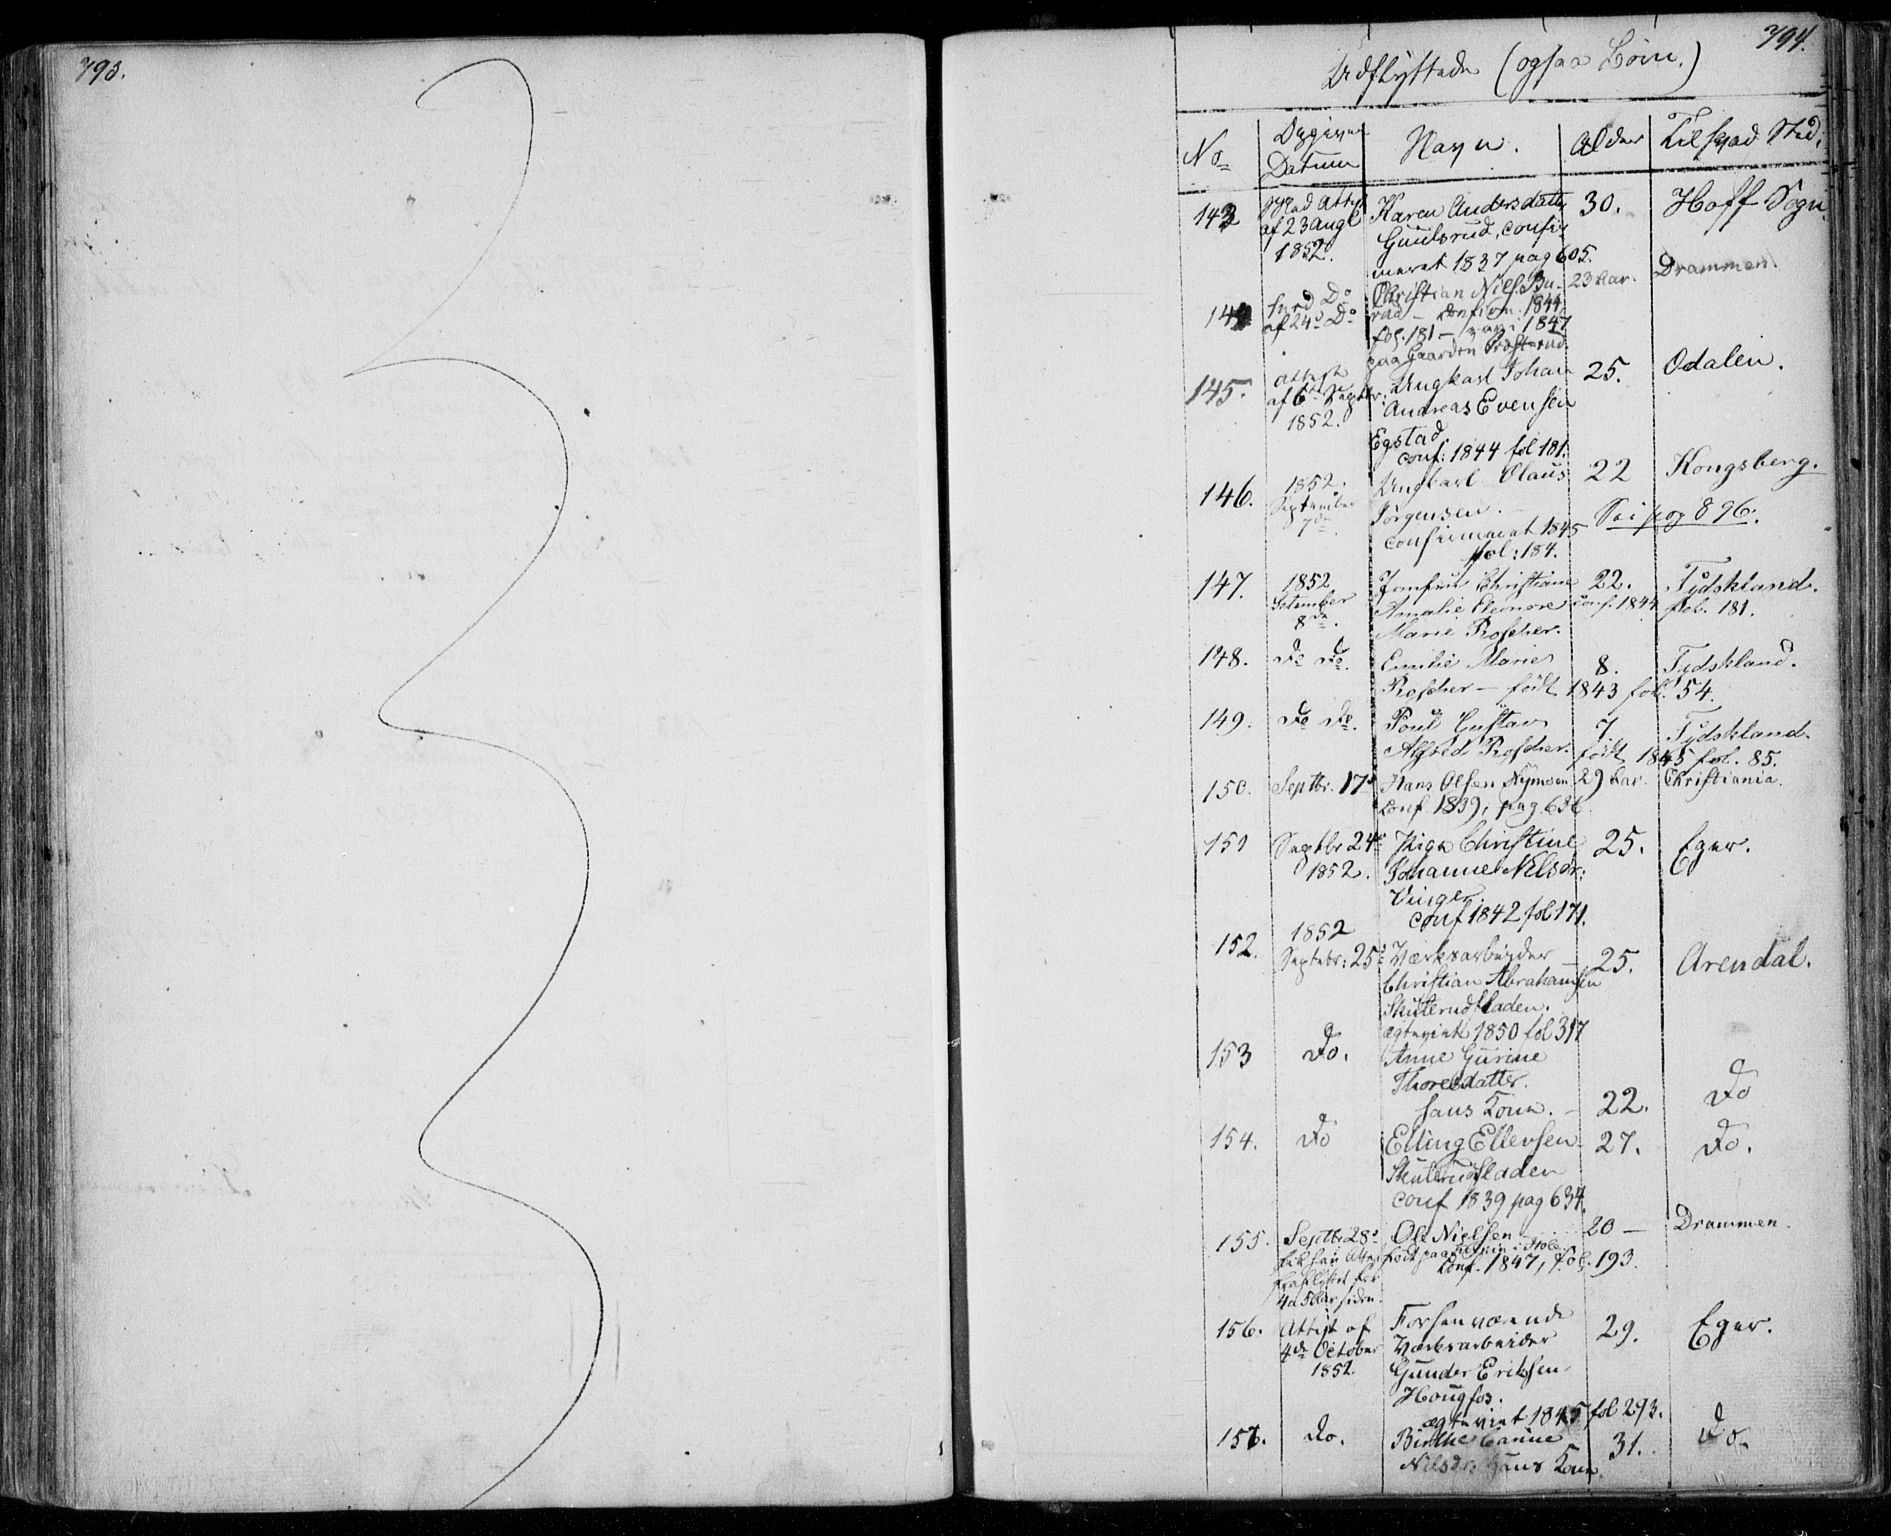 793.
794.
Udflyttede (ogsaa Börn.)
No
Opgiven Datum
Navn.
Alder
Til hvad Sted.
143 Med Attest Karen Andersdatter 30. Hoff Sogn.
af 23 Augt Guulsrud, confir-
1852. meret 1837 pag 605.
144 Do Christian Niels. Bu- 23 Aar. Drammen.
af 24d Do rud – Confirm: 1844
fol. 181 – 1847
paa Gaarden
145. Attest Ungkarl Johan 25. Odalen.
af 6te Septbr: Andreas Evensen
1852. Egstad
conf: 1844 fol 181.
146. 1852. Ungkarl Olaus 22 Kongsberg.
September Jörgensen. – See pag 896.
7de. confirmeret 1845
fol: 184.
147. 1852 Jomfru Christiane 22. Tydskland.
Setember Amalie Eleonore Conf. 1844 fol. 181.
8de. Marie Roscher.
148. Do Do. Emilie Marie 8. Tydskland.
Roscher – födt 1843 fol. 54.
149. Do Do. Poul Gustav 7 Tydskland.
Alfred Roscher. födt 1845 fol. 85.
150. Septbr. 17d Hans Olsen Nymoen 29 Aar. Christiania.
Conf. 1839, pag 636
151 Septbr 24de Pige Christine 25. Eger.
1852. Johanne Nilsdr:
Vinger.
conf 1842 fol 171.
152. 1852
Septebr: 25d Værksarbeider – 25. Arendal.
Christian Abrahamsen
Skuterudfladen.
ægteviet 1850 fol 317
153 Do. Anne Gurine
Thoresdatter.
hans Kone. – 22. Do
154. Do Elling Ellevsen 27. Do.
Skuterudfladen
conf 1839 pag 634.
155. Septbr 28d Ole Nielsen 20 – Drammen.
fik han Attest födt paa
Conf. 1847, Fol. 193.
fraflyttet for
4 a 5 Aar siden.
156. Attest af Forhenværende 29. Eger.
4de October Værksarbeider
1852. Gunder Eriksen
Hougfos.
ægteviet 1845 fol 293.
157. Do. Birthe Carine 31. Do.
Nilsdr: hans Kone.